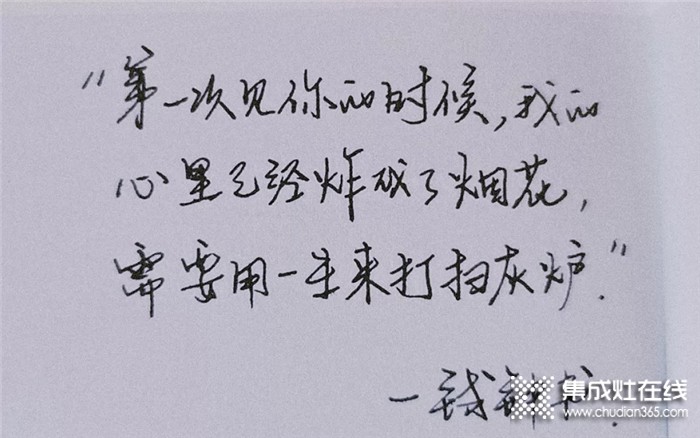 “第一次见你的时候,我的
心里已经炸成了烟花,
需要用一生来打扫灰炉.”
一钱钟书.
集成灶在线
www.chudian365.com